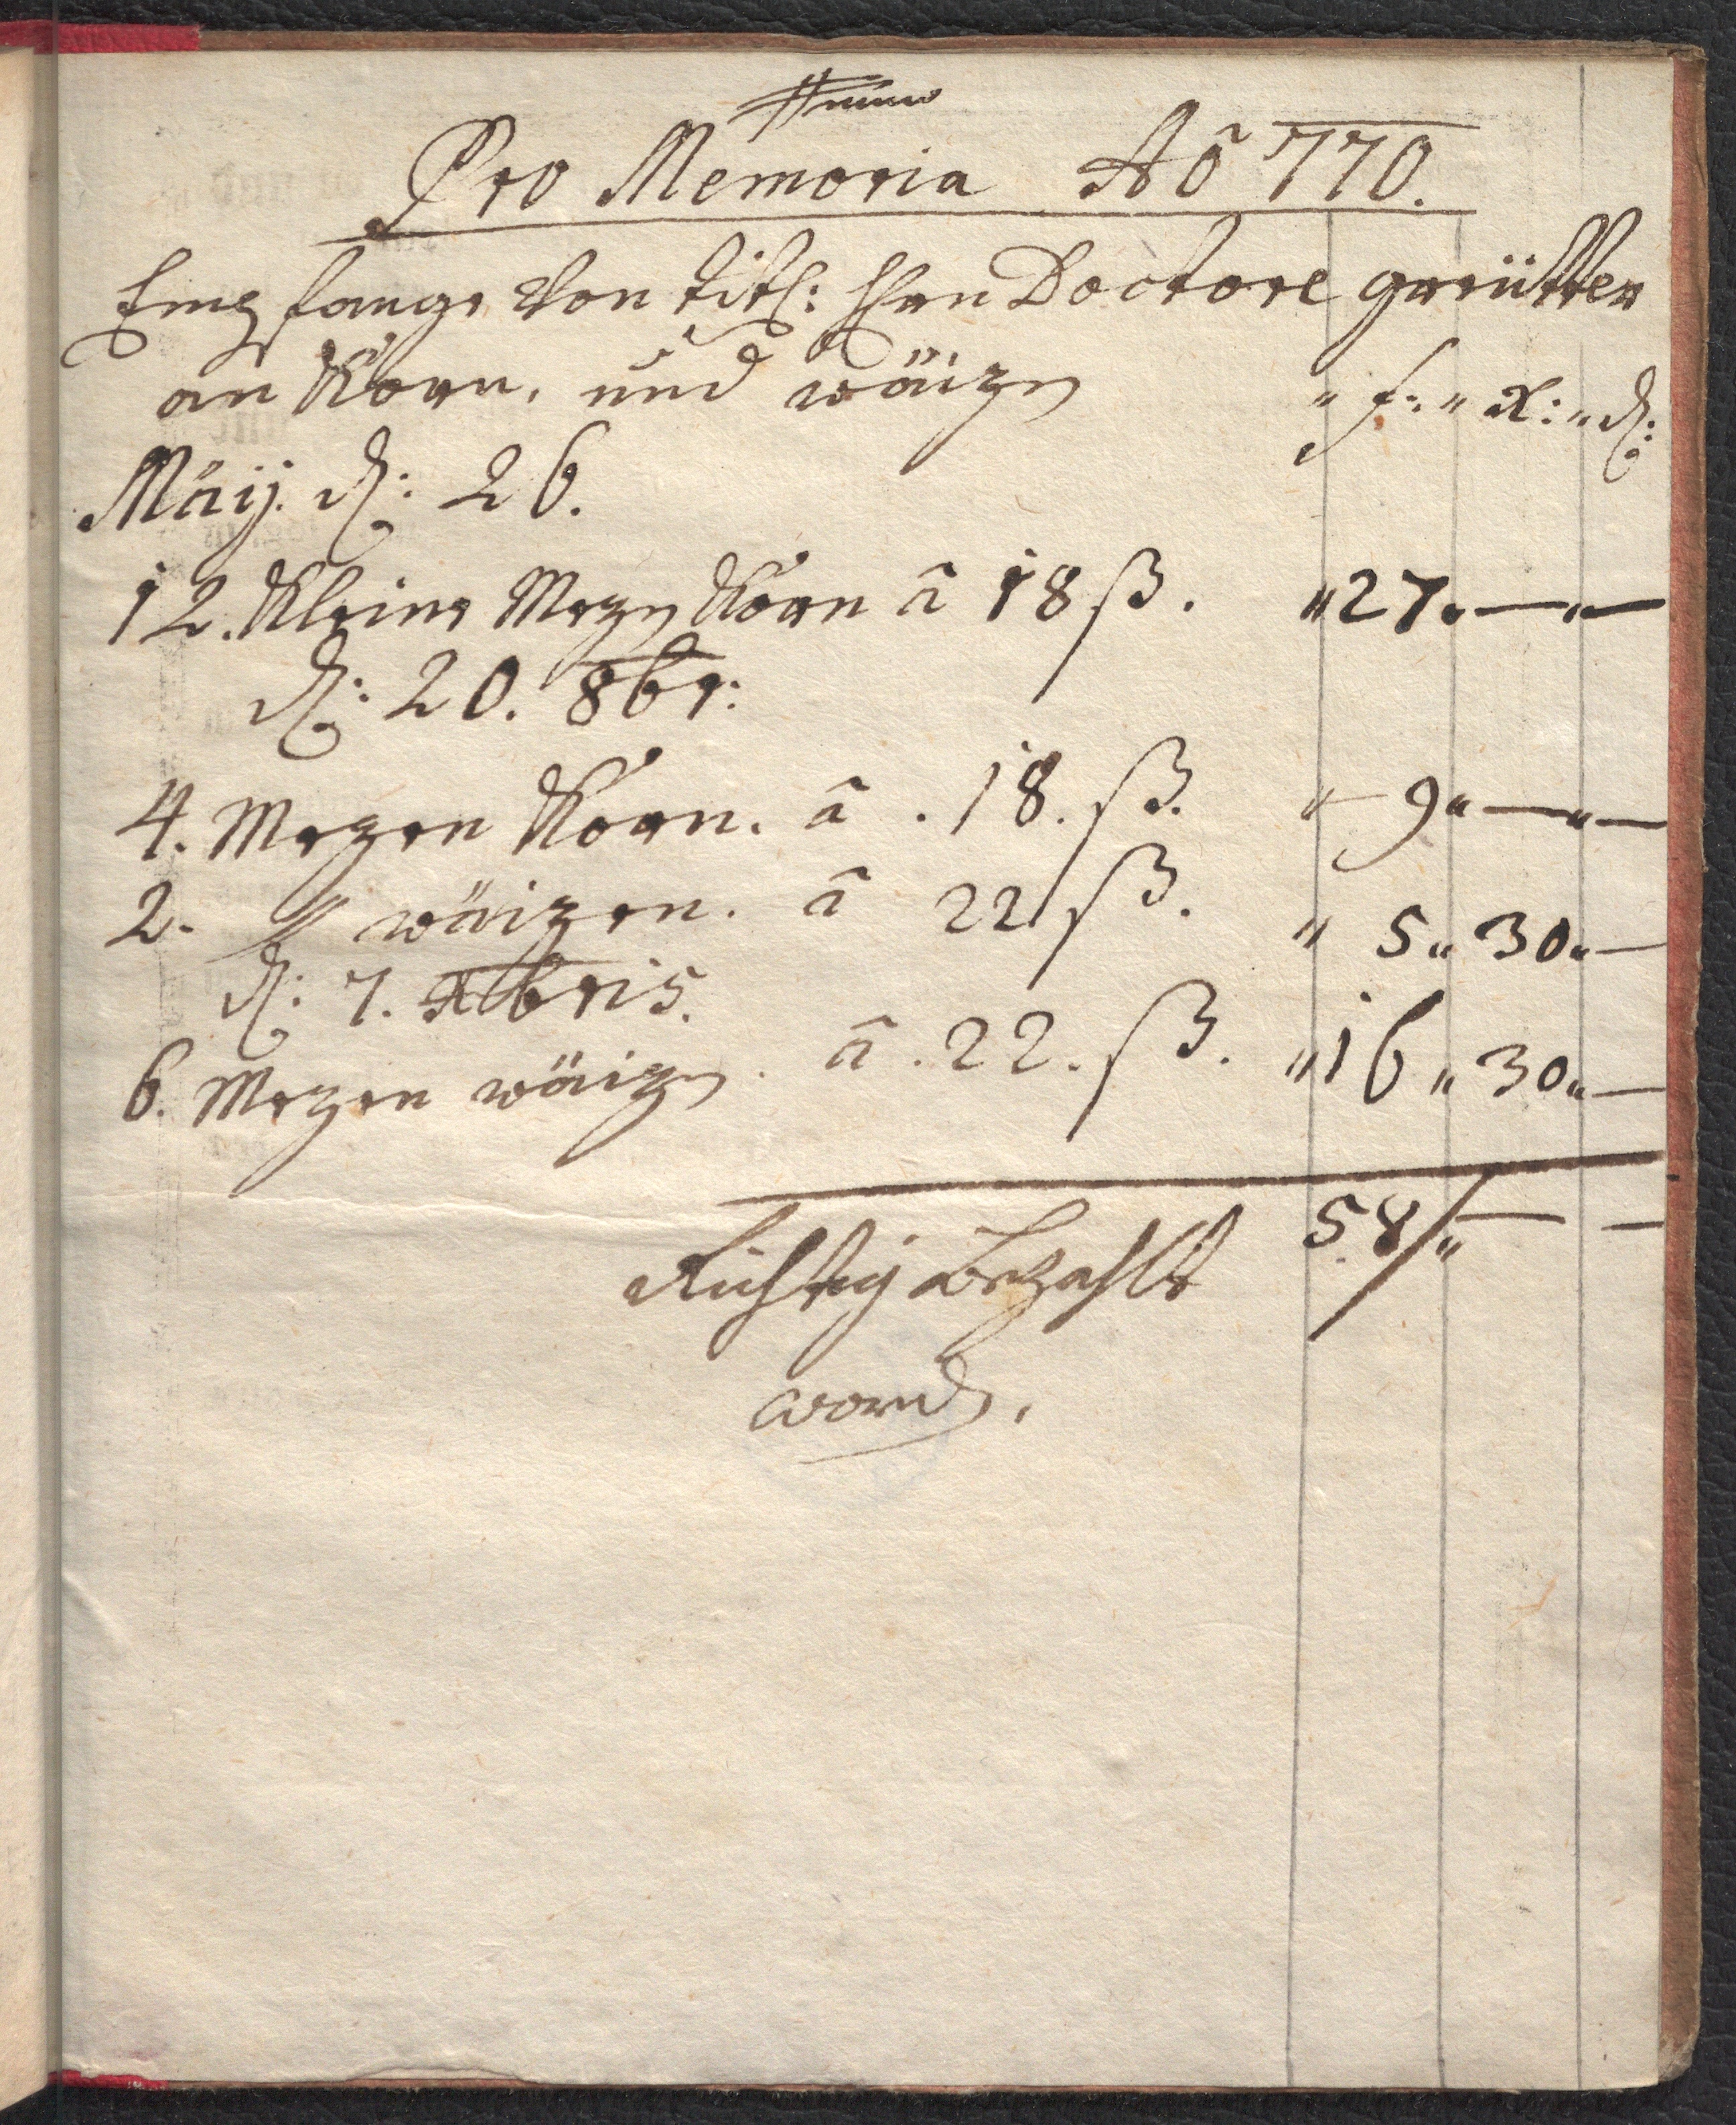 Pro Memoria Aô 770.
Empfange Von titl: Hrn Doctore gerütter
an Korn, und wäizn
" f: " x: " d:
Mäij. d: 26.
12. Kleine Mezn Korn â 18 ß. " 27 " — " —
d: 20. 8br:
4. Mezen Korn. â . 18. ß. " 9 " — " —
2. " wäizen. â 22 ß. " 5 " 30 " —
d: 7. Xbris.
6. Mezen wäizn. â . 22. ß. " 16 " 30 " —
Richtig Bezahlt 58 " — —
wordn.